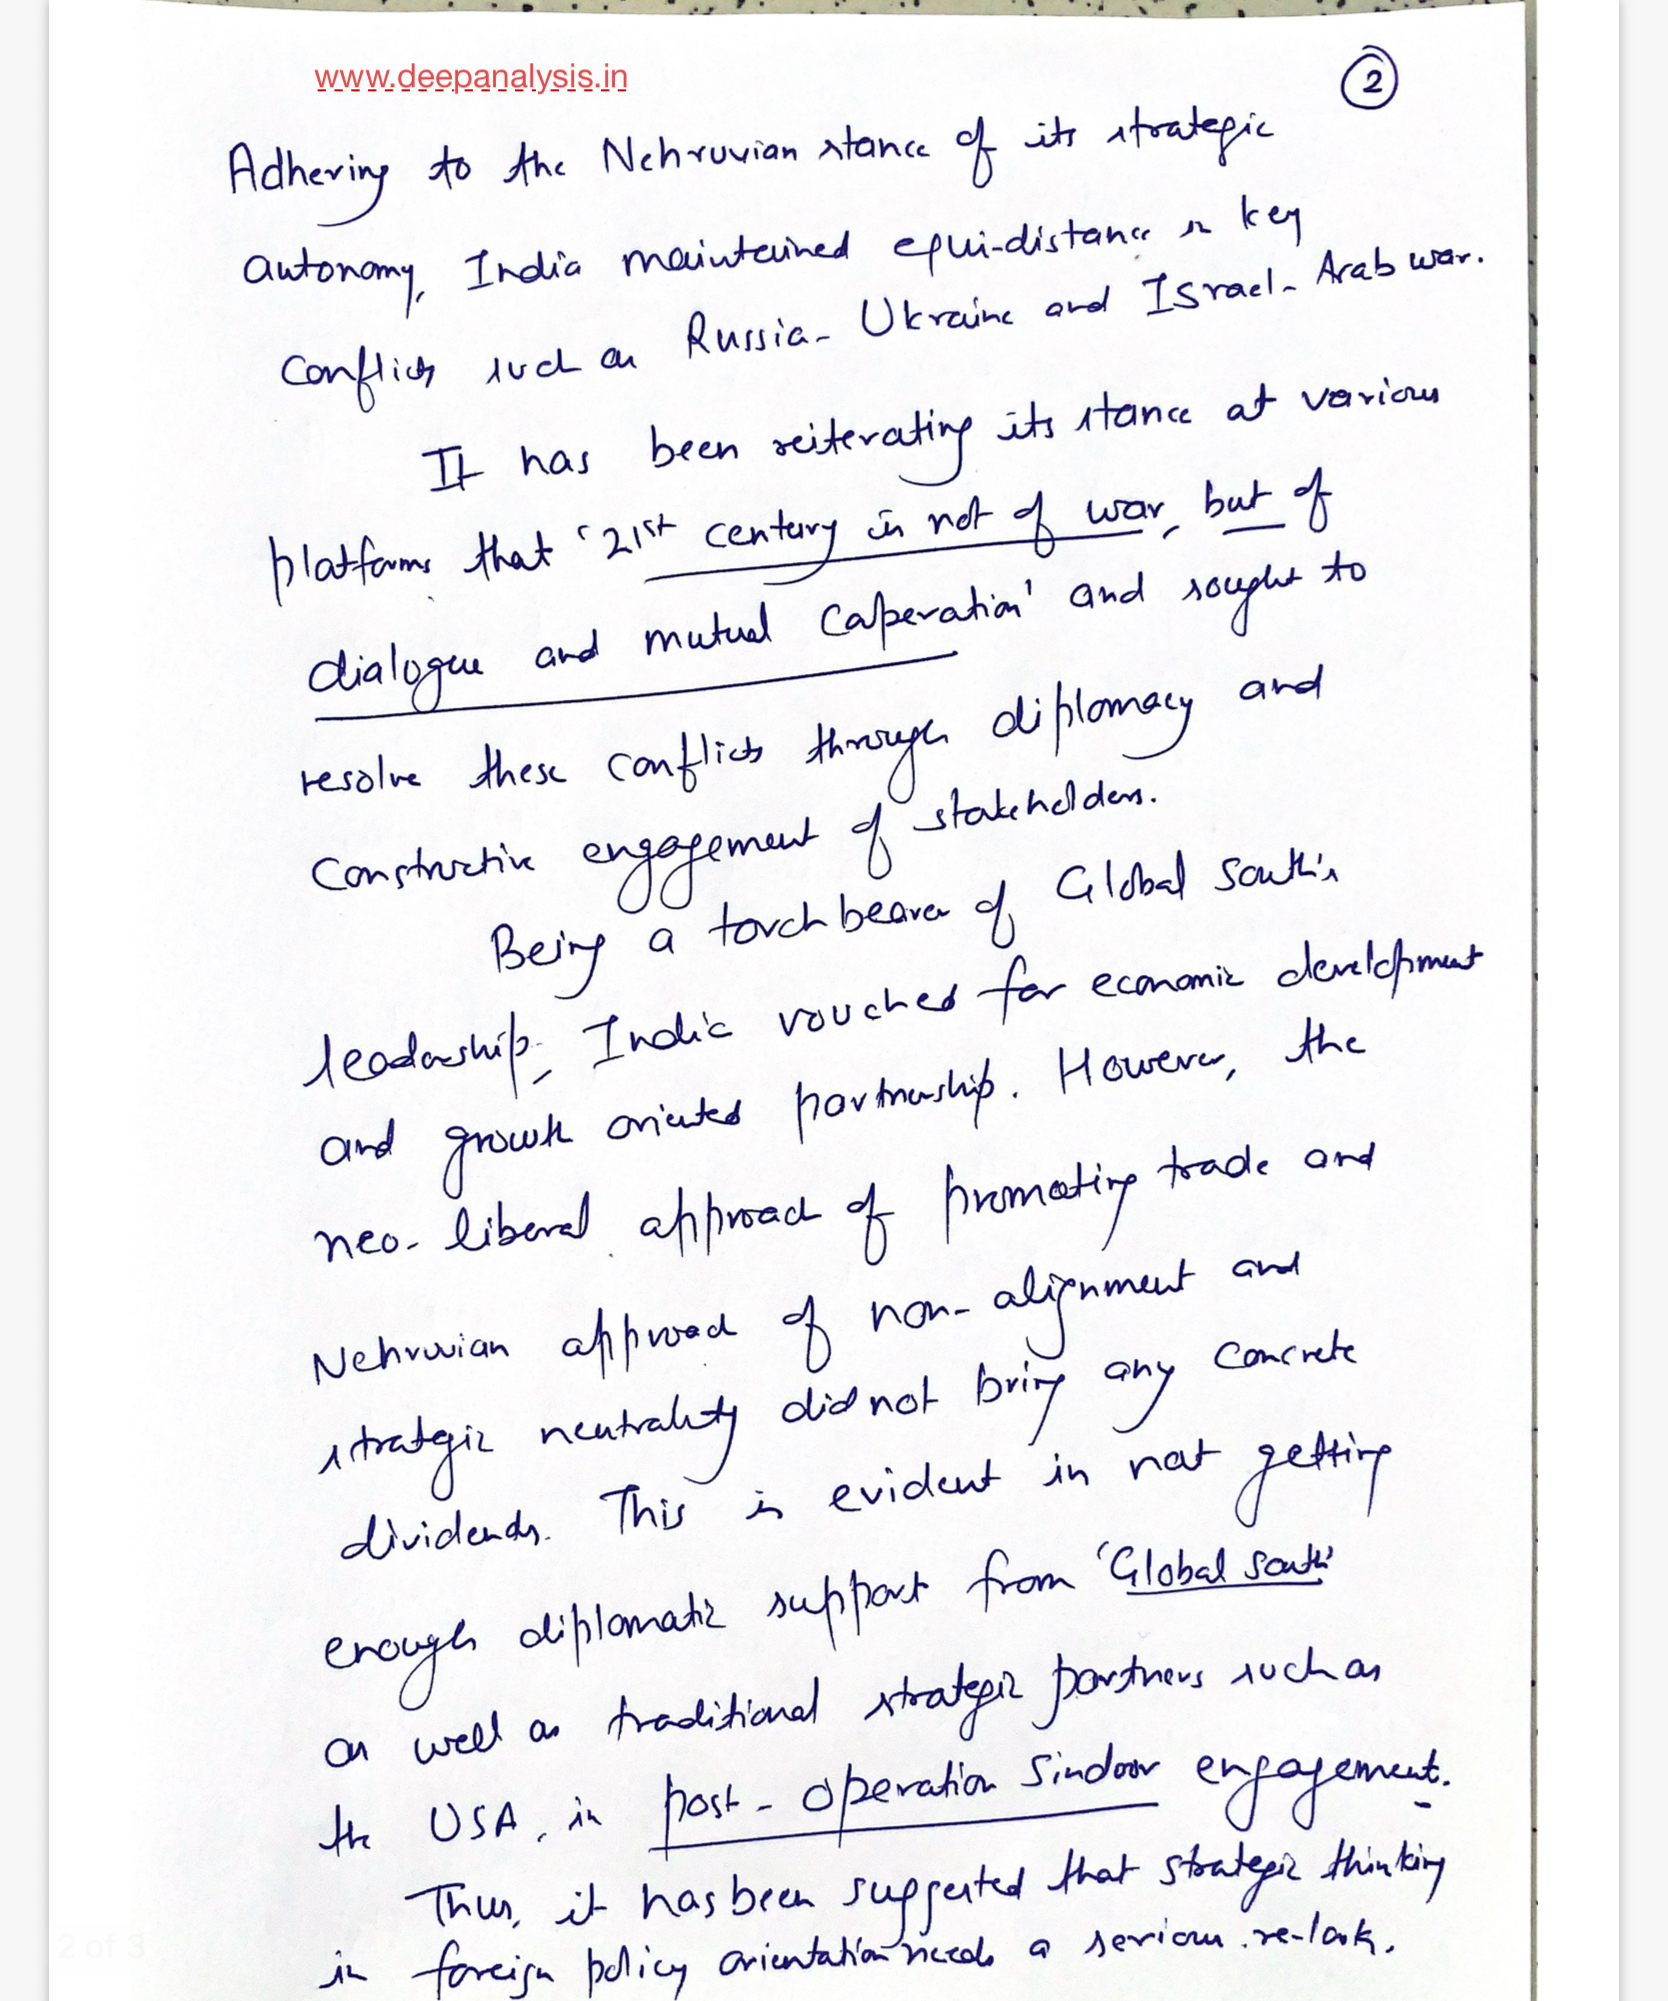 www.deepanalysis.in
2
Adhering to the Nehruvian stance of its strategic
autonomy, India maintained equi-distance in key
conflicts such as Russia-Ukraine and Israel-Arab war.
It has been reiterating its stance at various
platforms that '21st century is not of war, but of
dialogue and mutual cooperation' and sought to
resolve these conflicts through diplomacy and
constructive engagement of stakeholders.
Being a torch bearer of Global South's
leadership, India vouched for economic development
and growth oriented partnership. However, the
neo-liberal approach of promoting trade and
Nehruvian approach of non-alignment and
strategic neutrality did not bring any concrete
dividends. This is evident in not getting
enough diplomatic support from 'Global South'
as well as traditional strategic partners such as
the USA, in post-operation Sindoor engagement.
Thus, it has been suggested that strategic thinking
in foreign policy orientation needs a serious re-look.
2 of 3